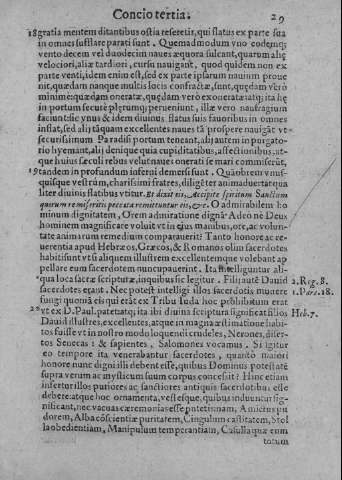 Concio tertia. 29
18 gratia mentem ditantibus ostia reseretis, qui flatus ex parte sua
in omnes sufflare parati sunt. Quemadmodum vno eodemq;
vento decem vel duodecim naues æquora sulcant, quarum aliq;
velociori, aliæ tardiori, cursu nauigant, quod quidem non ex
parte venti, idem enim est, sed ex parte ipsarum nauium proue
nit, quædam nanque multis locis confractæ, sunt, quędam verò
minimè: quædam oneratæ, quędam verò exoneratæ: atq; ita hę
in portum securè plęrumq; perueniunt, illæ vero naufragium
faciunt: sic vnus & idem diuinus flatus suis fauoribus in omnes
inflat, sed alij tāquam excellentes naues tā prospere nauigāt vt
securissimum Paradisi portum teneant, alij autem in purgato-
rio hyemant, alij denique quia cupiditatibus, affectionibus, at-
que huius sæculi rebus velut naues onerati se mari commiserūt,
19 tandem in profundo inferni demersi sunt. Quāobrem vnus-
quisque vestrûm, charissimi fratres, diligēter animaduertat qua
liter diuinis flatibus vtitur. Et dixit eis, Accipite spiritum Sanctum
quorum remiseritis peccata remittuntur eis, &c. O admirabilem ho
minum dignitatem, O rem admiratione dignā! Adeo nè Deus
hominem magnificare voluit vt in ejus manibus, ore, ac volun-
tate animarum remedium compararetur? Tanto honore ac re-
uerentia apud Hebræos, Græcos, & Romanos olim sacerdotes
habiti sunt vt si aliquem illustrem excellentemque volebant ap
pellare eum sacerdotem nuncuparent. Ita intelliguntur ali-
qua loca sacræ scripturæ, in quibus sic legitur. Filij autē Dauid 2. Reg. 8.
sacerdotes erant. Nec potest intelligi illos sacerdotis munere 1. Para. 18.
fungi quoniā eis qui erāt ex Tribu Iuda hoc prohibitum erat
20 vt ex D. Paul. patet: atq; ita ibi diuina scriptura significat filios Heb. 7.
Dauid illustres, excellentes, atque in magna æstimatione habi-
tos fuisse vt in nostro modo loquendi crudeles, Nerones, diser-
tos Senecas: & sapientes, Salomones vocamus. Si igitur
eo tempore ita venerabantur sacerdotes, quanto maiori
honore nunc digni illi debent esse, quibus Dominus potestatē
supra verum ac mysticum suum corpus concessit? Hinc etiam
infertur illos puriores ac sanctiores antiquis sacerdotibus esse
debere: atque hoc ornamenta, vestesque, quibus induuntur sig-
nificant, nec vacuas cæremonias esse putetis nam, Amictus pu
dorem, Alba cōscientiæ puritatem, Cingulum castitatem, Stol
la obedientiam, Manipulum temperantiam, Casulla quæ eum
totum